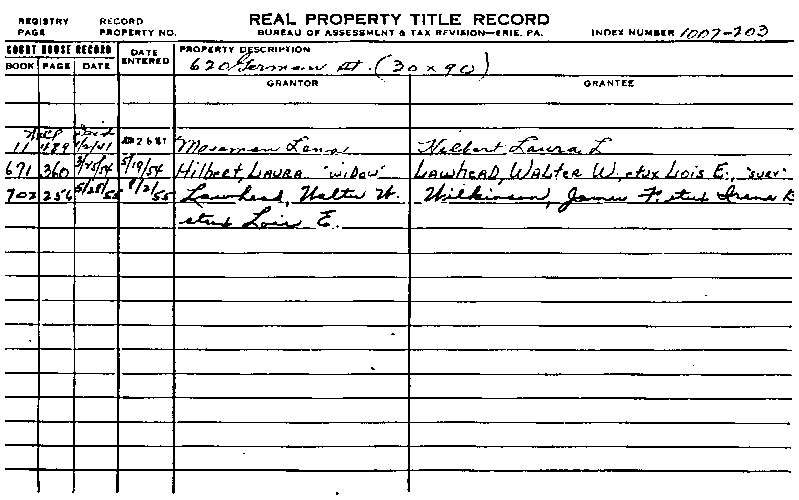 REGISTRY RECORD REAL PROPERTY TITLE RECORD
PAGE PROPERTY NO. BUREAU OF ASSESSMENT & TAX REVISION—ERIE, PA. INDEX NUMBER 1007-203
COURT HOUSE RECORD DATE ENTERED PROPERTY DESCRIPTION
BOOK PAGE DATE 620 German St. (30 x 90)
GRANTOR GRANTEE
11 489 1/2/41 Moseman Lena Hilbert Laura L
671 360 3/25/54 5/19/54 Hilbert, LAURA "WIDOW" LAWHEAD, WALTER W., etux LOIS E., "SURV"
702 256 5/28/55 8/2/55 Lawhead, Walter W. Wilkinson, James F. etux Irene
etux Lois E.